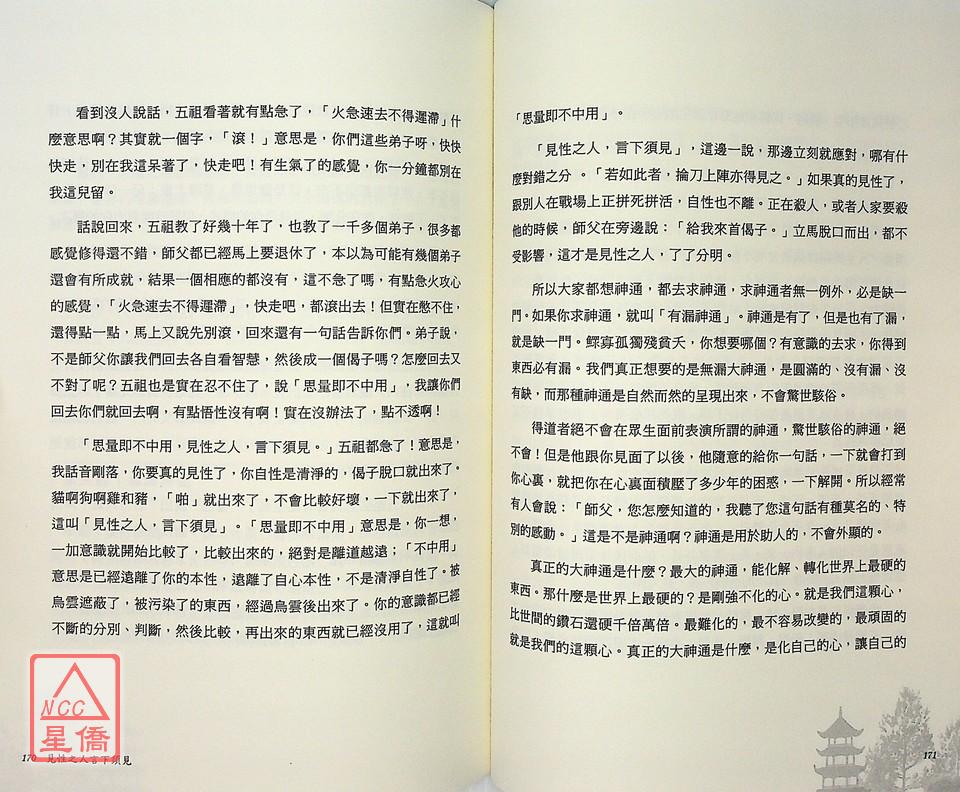 看到沒人說話，五祖看著就有點急了，「火急速去不得遲滯」什
麼意思啊？其實就一個字，「滾！」意思是，你們這些弟子呀，快快
快走，別在我這呆著了，快走吧！有生氣了的感覺，你一分鐘都別在
我這兒留。
話說回來，五祖教了好幾十年了，也教了一千多個弟子，很多都
感覺修得還不錯，師父都已經馬上要退休了，本以為可能有幾個弟子
還會有所成就，結果一個相應的都沒有，這不急了嗎，有點急火攻心
的感覺，「火急速去不得遲滯」，快走吧，都滾出去！但實在憋不住，
還得點一點，馬上又說先別滾，回來還有一句話告訴你們。弟子說，
不是師父你讓我們回去各自看智慧，然後成一個偈子嗎？怎麼回去又
不對了呢？五祖也是實在忍不住了，說「思量即不中用」，我讓你們
回去你們就回去啊，有點悟性沒有啊！實在沒辦法了，點不透啊！
「思量即不中用，見性之人，言下須見。」五祖都急了！意思是，
我話音剛落，你要真的見性了，你自性是清淨的，偈子脫口就出來了。
貓啊狗啊雞和豬，「啪」就出來了，不會比較好壞，一下就出來了，
這叫「見性之人，言下須見」。「思量即不中用」意思是，你一想，
一加意識就開始比較了，比較出來的，絕對是離道越遠；「不中用」
意思是已經遠離了你的本性，遠離了自心本性，不是清淨自性了。被
烏雲遮蔽了，被污染了的東西，經過烏雲後出來了。你的意識都已經
不斷的分別、判斷，然後比較，再出來的東西就已經沒用了，這就叫
NCC
星僑
170 見性之人言下須見
「思量即不中用」。
「見性之人，言下須見」，這邊一說，那邊立刻就應對，哪有什
麼對錯之分 。「若如此者，掄刀上陣亦得見之。」如果真的見性了，
跟別人在戰場上正拼死拼活，自性也不離。正在殺人，或者人家要殺
他的時候，師父在旁邊說：「給我來首偈子。」立馬脫口而出，都不
受影響，這才是見性之人，了了分明。
所以大家都想神通，都去求神通，求神通者無一例外，必是缺一
門。如果你求神通，就叫「有漏神通」。神通是有了，但是也有了漏，
就是缺一門。鰥寡孤獨殘貧夭，你想要哪個？有意識的去求，你得到
東西必有漏。我們真正想要的是無漏大神通，是圓滿的、沒有漏、沒
有缺，而那種神通是自然而然的呈現出來，不會驚世駭俗。
得道者絕不會在眾生面前表演所謂的神通，驚世駭俗的神通，絕
不會！但是他跟你見面了以後，他隨意的給你一句話，一下就會打到
你心裏，就把你在心裏面積壓了多少年的困惑，一下解開。所以經常
有人會說：「師父，您怎麼知道的，我聽了您這句話有種莫名的、特
別的感動。」這是不是神通啊？神通是用於助人的，不會外顯的。
真正的大神通是什麼？最大的神通，能化解、轉化世界上最硬的
東西。那什麼是世界上最硬的？是剛強不化的心。就是我們這顆心，
比世間的鑽石還硬千倍萬倍。最難化的，最不容易改變的，最頑固的
就是我們的這顆心。真正的大神通是什麼，是化自己的心，讓自己的
171